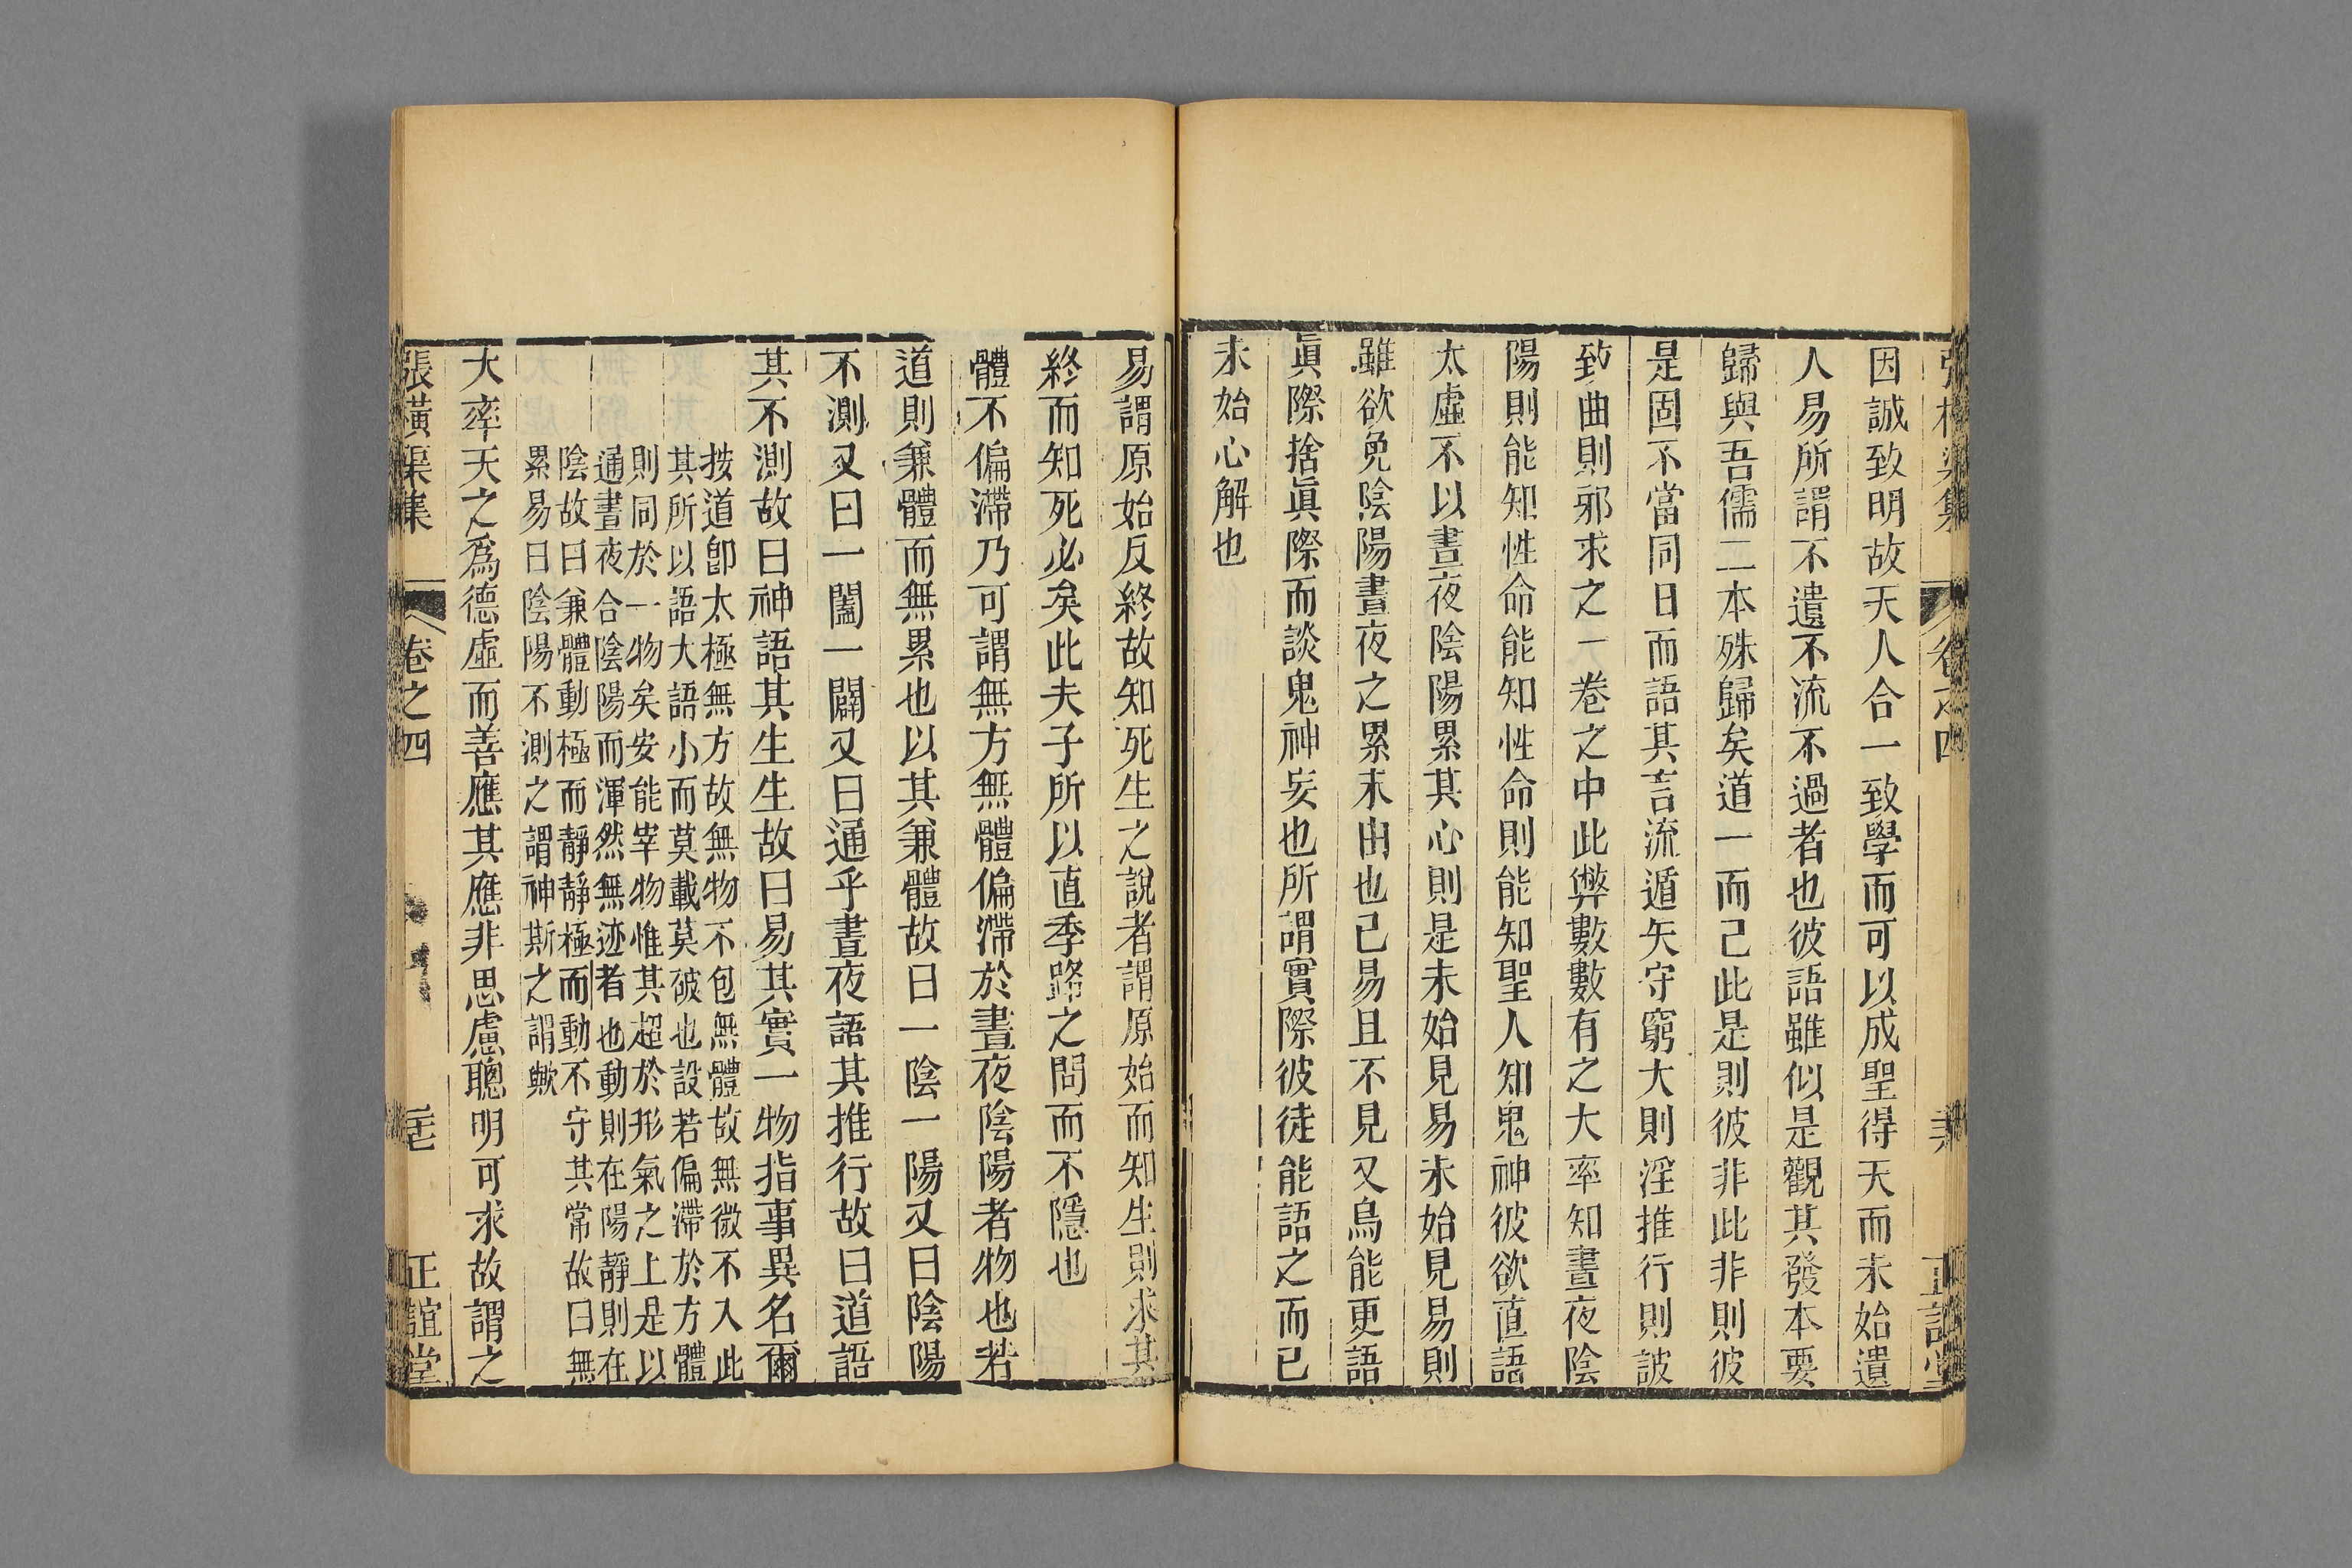 因誠致明故天人合一致學而可以成聖得天而未始遺
人易所謂不遺不流不過者也彼語雖似是觀其發本要
歸與吾儒二本殊歸矣道一而己此是則彼非此非則彼
是固不當同日而語其言流遁失守窮大則淫推行則詖
致曲則邪求之一卷之中此弊數數有之大率知晝夜陰
陽則能知性命能知性命則能知聖人知鬼神彼欲直語
太虛不以晝夜陰陽累其心則是未始見易未始見易則
雖欲免陰陽晝夜之累末由也己易且不見又烏能更語
眞際捨眞際而談鬼神妄也所謂實際彼徒能語之而已
未始心解也
易謂原始反終故知死生之說者謂原始而知生則求其
終而知死必矣此夫子所以直季路之問而不隱也
體不偏滯乃可謂無方無體偏滯於晝夜陰陽者物也若
道則兼體而無累也以其兼體故曰一陰一陽又曰陰陽
不測又曰一闔一闢又曰通乎晝夜語其推行故曰道語
其不測故曰神語其生生故曰易其實一物指事異名爾
按道卽太極無方故無物不包無體故無微不入此
其所以語大語小而莫載莫破也設若偏滯於方體
則同於一物矣安能宰物惟其超於形氣之上是以
通晝夜合陰陽而渾然無迹者也動則在陽靜則在
陰故曰兼體動極而靜靜極而動不守其常故曰無
累易曰陰陽不測之謂神斯之謂歟
大率天之爲德虛而善應其應非思慮聰明可求故謂之
張橫渠集
卷之四
正誼堂